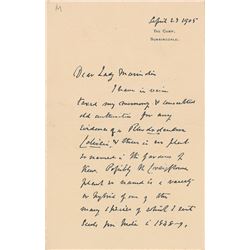 M
April 23 1905
THE CAMP,
SUNNINGDALE.
Dear Lady Marindin
I have in vain
taxed my memory & consulted
old authorities for any
evidence of a Rhododendron
& there is no plant
so named in the Gardens of
Kew. Possibly the
plant so named is a variety
or hybrid of one of the
many species of which I sent
seeds from India in 1848-9,